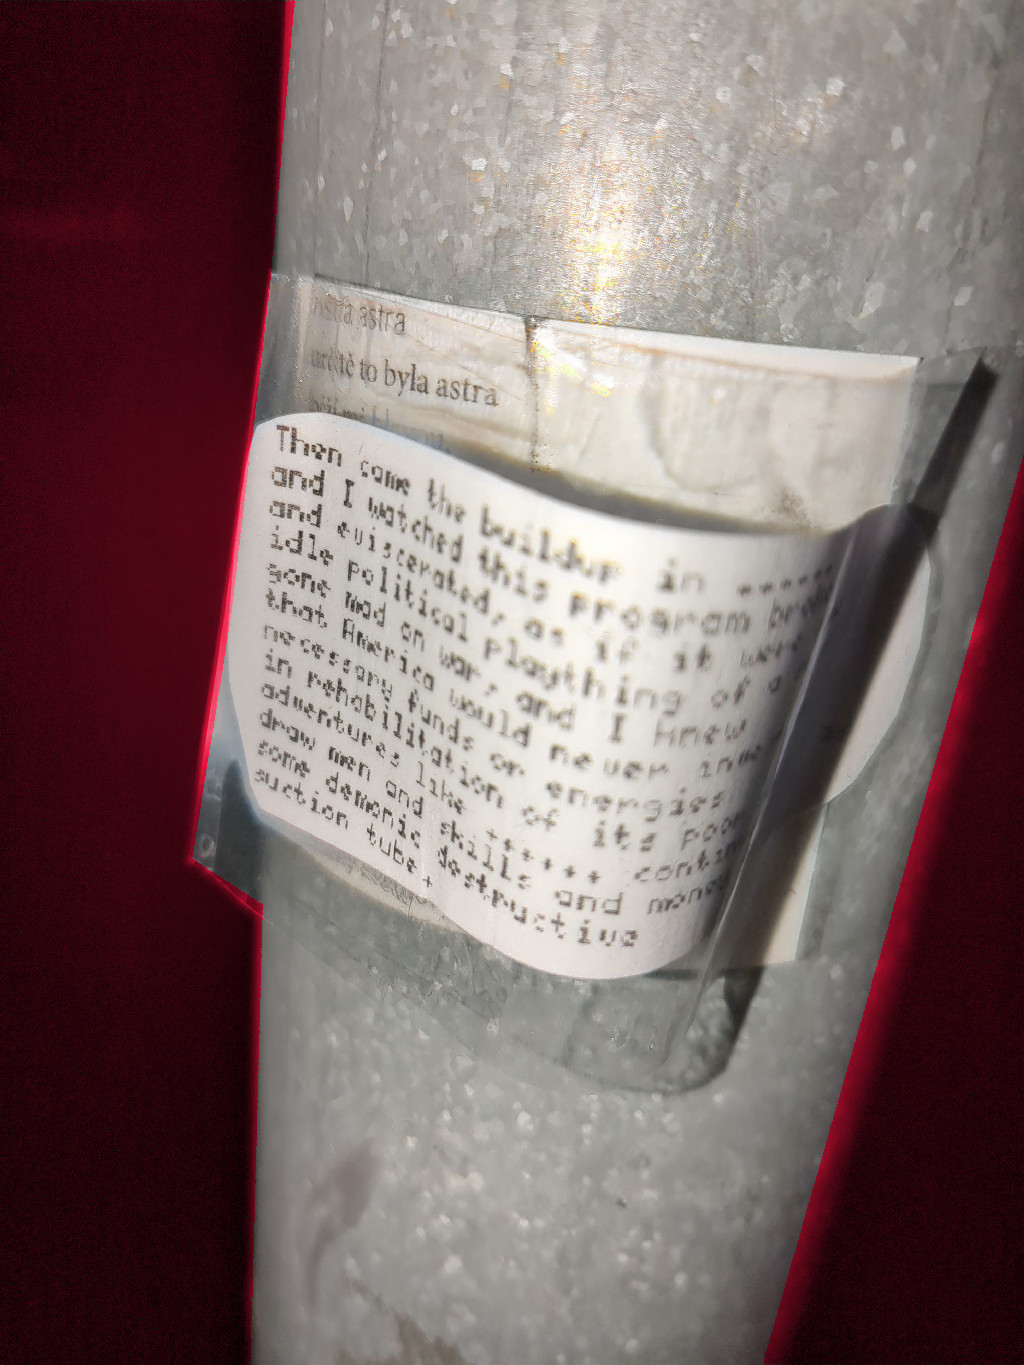 astra
určitě to byla astra
Then came the buildup in ......
and I watched this program broken
and eviscerated, as if it were
idle political plaything of a
gone mad on war, and I knew
that America would never invest
necessary funds or energies
in rehabilitation of its poor
adventures like ++++++ contin
draw men and skills and money
some demonic destructive
suction tube+